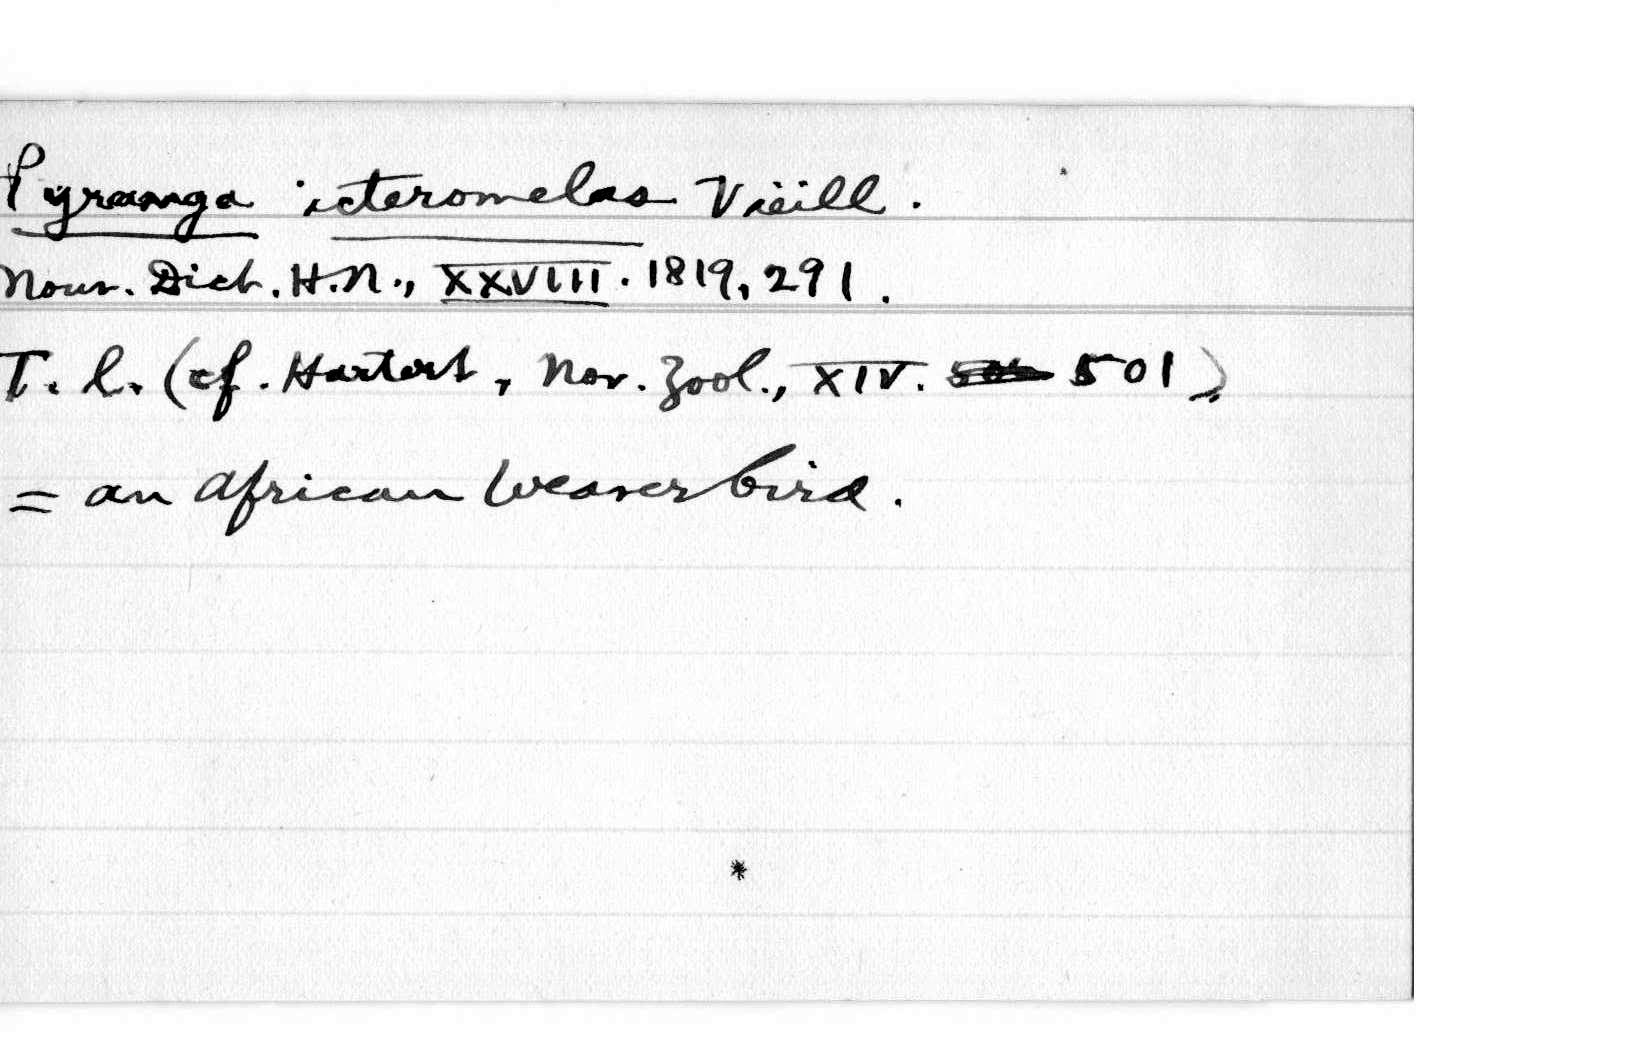 Pyranga icteromelas Vieill.
Nouv. Dict. H.N., XXVIII. 1819, 291.
T. l. (cf. Hartert, Nov. Zool., XIV. 501).
= an African Weaver bird.
*